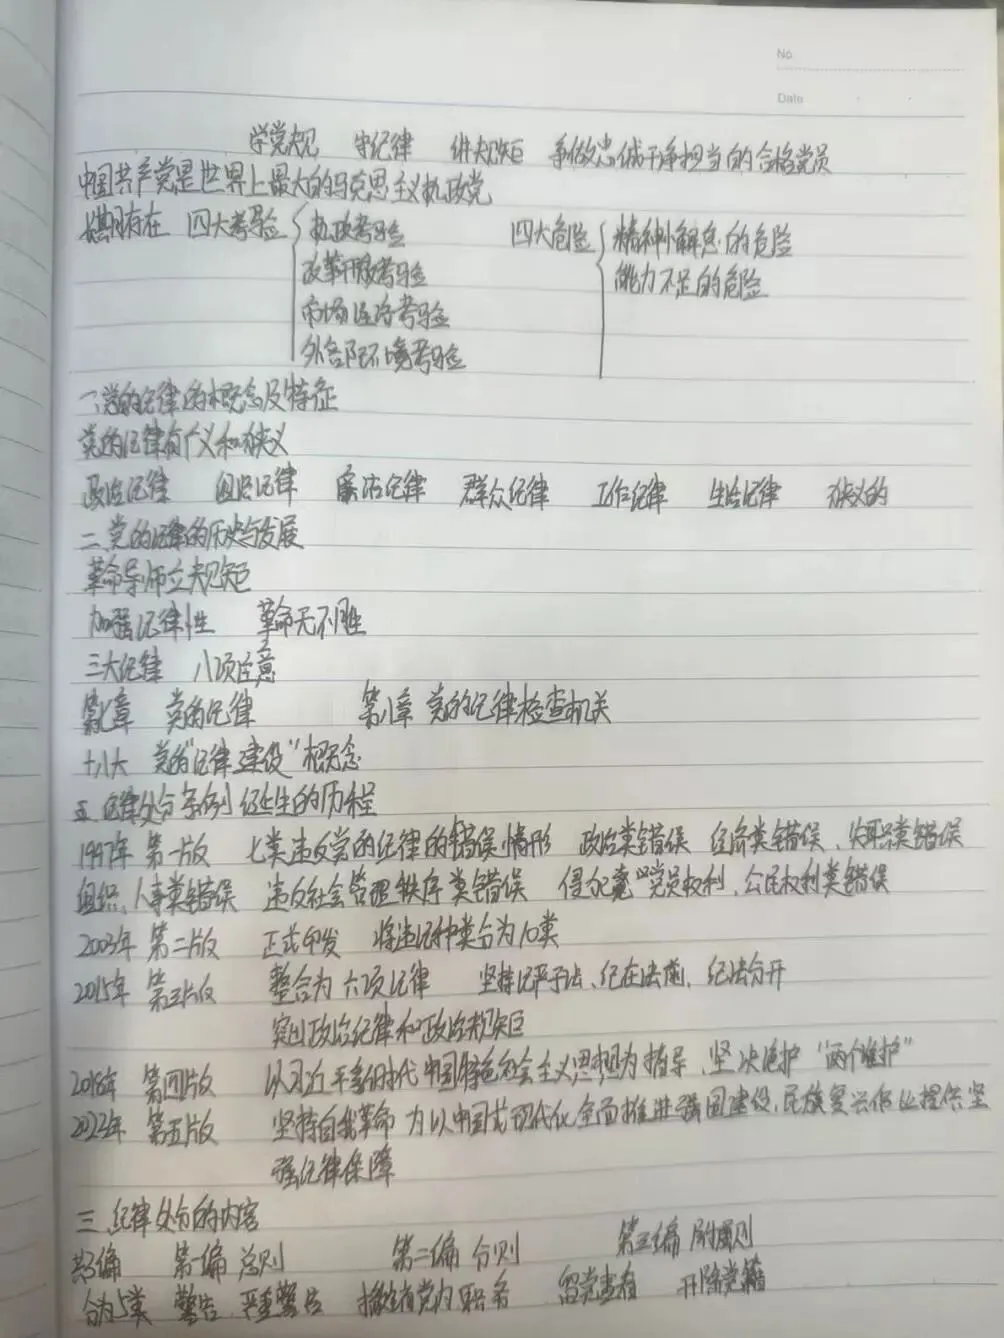 No
Date
学党规 守纪律 讲规矩 争做忠诚干净担当的合格党员
中国共产党是世界上最大的马克思主义执政党
长期存在 四大考验 执政考验 四大危险 精神懈怠的危险
改革开放考验 能力不足的危险
市场经济考验
外部环境考验
一、党的纪律的概念及特征
党的纪律有广义和狭义
政治纪律 组织纪律 廉洁纪律 群众纪律 工作纪律 生活纪律 狭义的
二、党的纪律的历史与发展
革命导师立规矩
加强纪律性 革命无不胜
三大纪律 八项注意
第七章 党的纪律 第八章 党的纪律检查机关
十八大 党的"纪律建设"概念
五、纪律处分条例诞生的历程
1997年 第一版 七类违反党的纪律的错误情形 政治类错误 经济类错误、失职类错误
组织、人事类错误 违反社会管理秩序类错误 侵犯党员权利、公民权利类错误
2003年 第二版 正式印发 将违纪种类分为10类
2015年 第三版 整合为六项纪律 坚持纪严于法、纪在法前、纪法分开
突出政治纪律和政治规矩
2018年 第四版 以习近平新时代中国特色社会主义思想为指导、坚决维护"两个维护"
年 第五版 坚持自我革命 为以中国式现代化全面推进强国建设、民族复兴伟业提供坚
强纪律保障
三、纪律处分的内容
编 第一编 总则 第二编 分则 第三编 附则
分为5类 警告、严重警告 撤销党内职务 留党查看 开除党籍